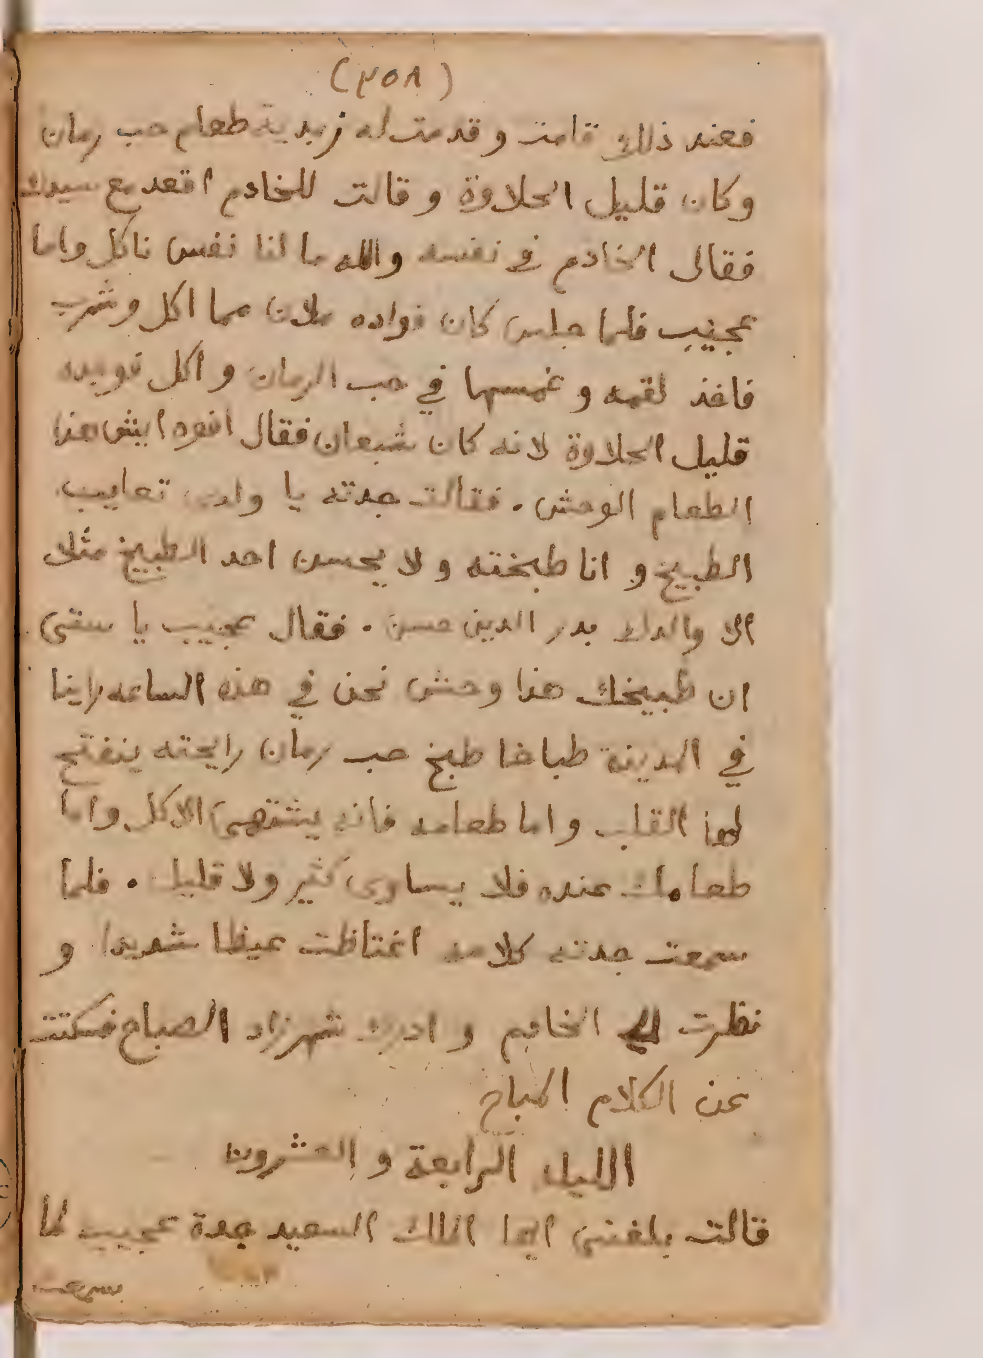 (٢٥٨)
فعند ذلك قامت و قدمت له زبدية طعام حب رمان
وكان قليل الحلاوة و قالت للخادم اقعد مع سيدك
فقال الخادم في نفسه والله ما لنا نفس ناكل واما
عجيب فلما جلس كان فواده ملان مما اكل وشرب
فاخذ لقمه و غمسها في حب الرمان و اكل فوجده
قليل الحلاوة لانه كان شبعان فقال افوه ايش هذا
الطعام الوحش . فقالت جدته يا ولدى تعايب
الطبيخ و انا طبخته و لا يحسن احد الطبيخ مثلى
الا والدك بدر الدين حسن . فقال عجيب يا ستى
ان طبيخك هذا وحش نحن في هذه الساعه راينا
في المدينة طباخا طبخ حب رمان رايحته ينفتح
لها القلب و اما طعامه فانه يشتهى الاكل واما
طعامك عنده فلا يساوى كثير ولا قليل . فلما
سمعت جدته كلامه اغتاظت غيظا شديدا و
نظرت الى الخادم و ادرك شهرزاد الصباح فسكتت
عن الكلام المباح
الليلة الرابعة و العشرون
قالت بلغنى ايها الملك السعيد جدة عجيب لما
سمعت